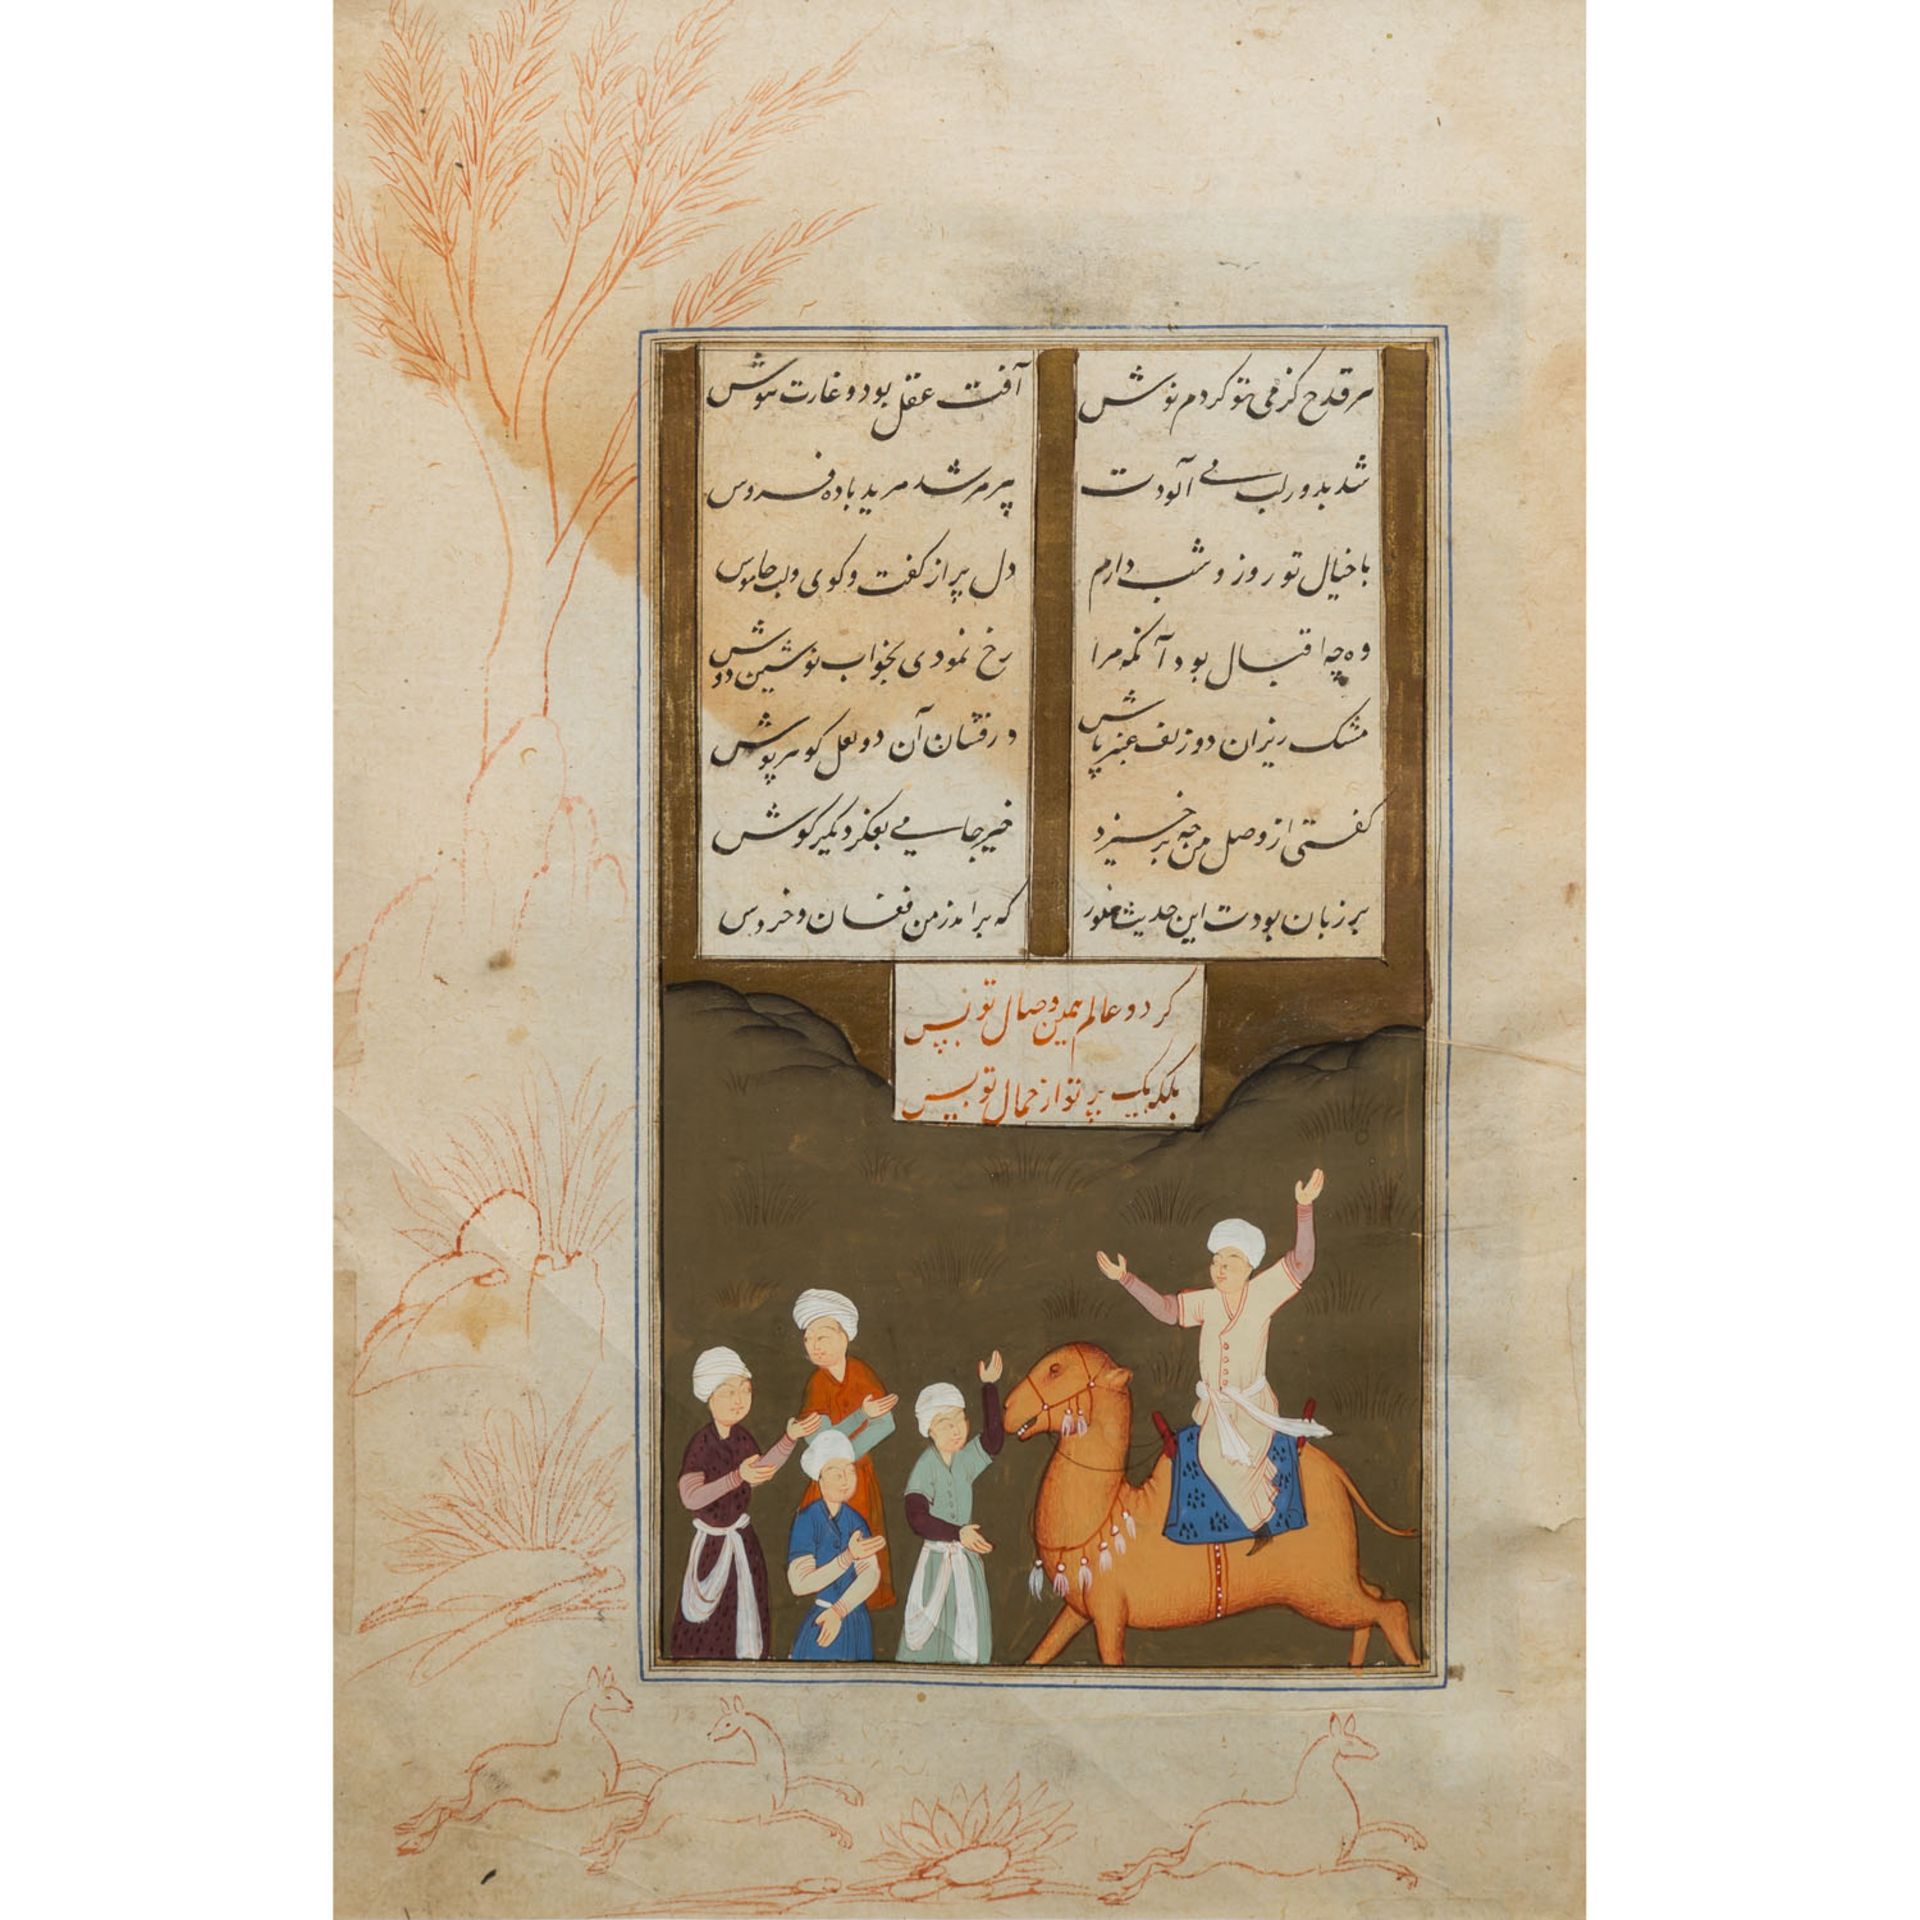 هر قدح کز می تو کردم نوش
آفت عقل بود و غارت هوش
شد بدور لب می آلودت
پیر مرشد مرید باده فروش
با خیال تو روز و شب دارم
دل پر از گفت و گوی و لب خاموش
وه چه اقبال بود آنکه مرا
رخ نمودی بخواب نوشین دوش
مشک ریزان دو زلف عنبر پاش
در فشان آن دو لعل گوهر پوش
گفتی از وصل من چه برخیزد
خیز جامی بگیر
بر زبان بودت این حدیث هنوز
که برآمد ز من فغان و خروش
کز دو عالم همین وصال تو بس
بلکه یک پرتو از جمال تو بس